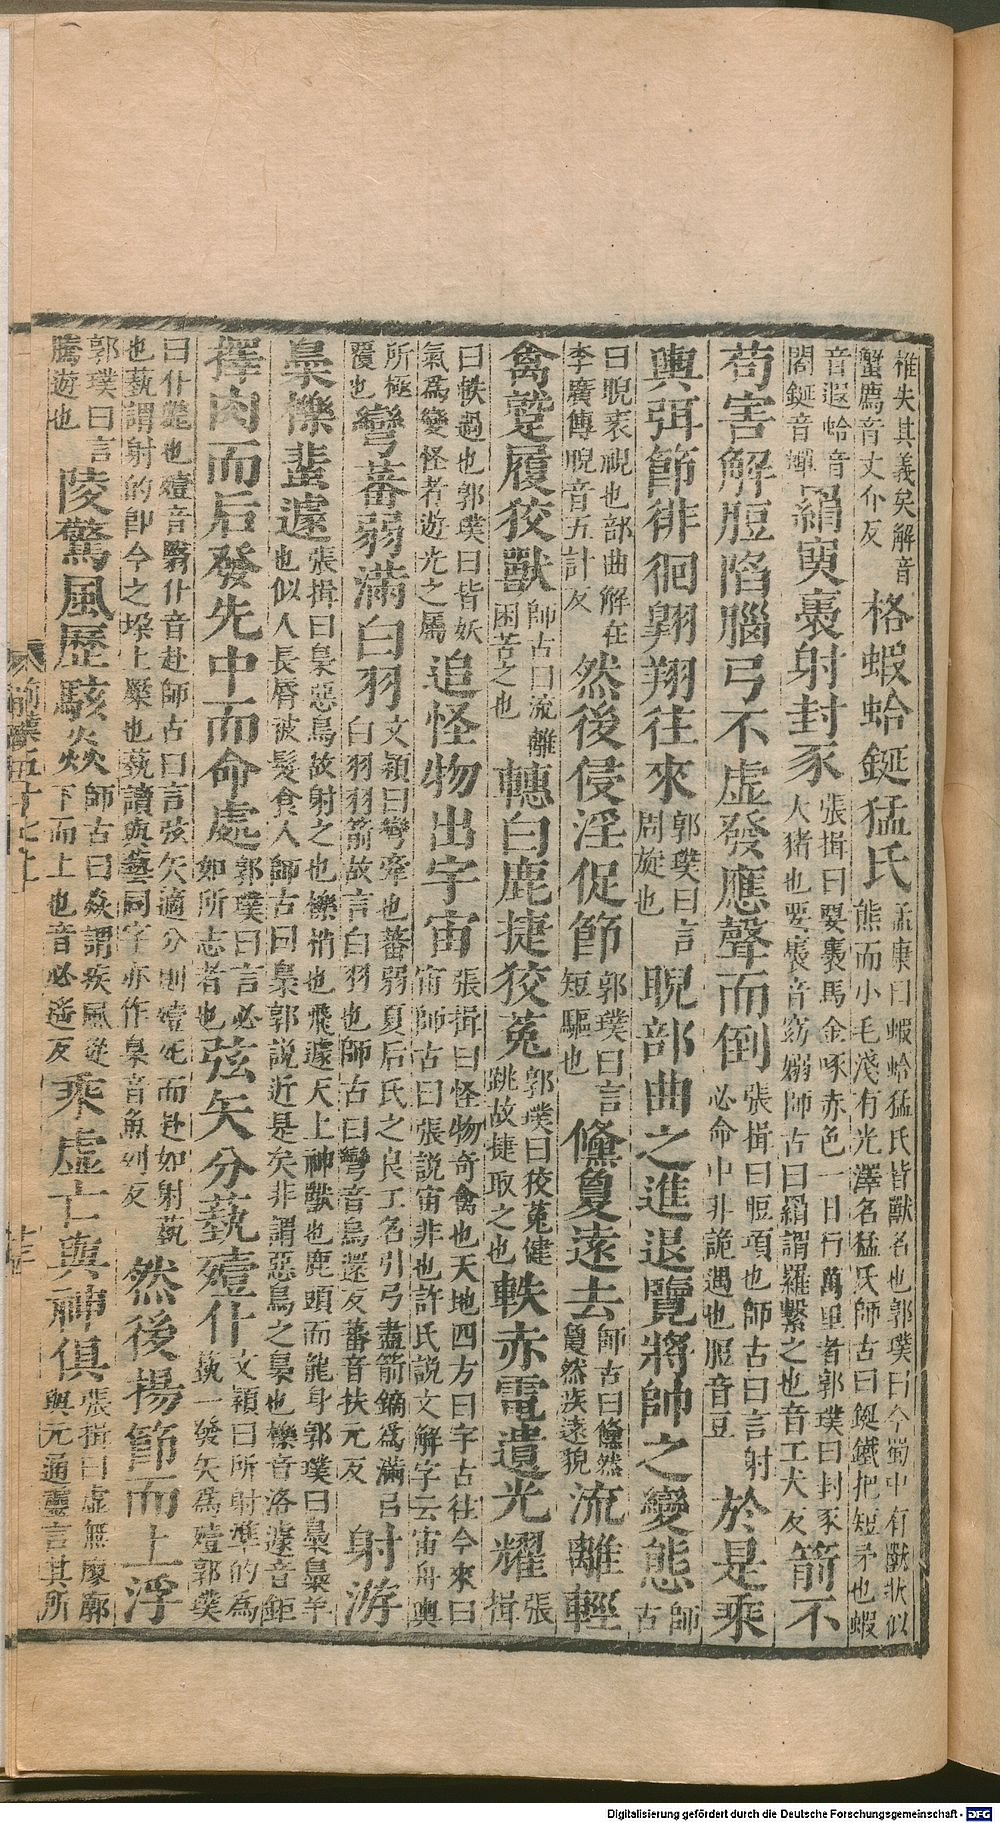 椎失其義矣解音蟹廌音丈介反格蝦蛤鋋猛氏孟康曰蝦蛤猛氏皆獸名也郭璞曰今蜀中有獸狀似熊而小毛淺有光澤名猛氏師古曰鋋鐵把短矛也蝦
音遐蛤音閤鋋音蟬羂䙚裊射封豕張揖曰䙚裊馬金喙赤色一日行萬里者郭璞曰封豕大猪也䙚裊音窈嫋師古曰羂謂羅繫之也音工犬反箭不
苟害解脰陷腦弓不虛發應聲而倒張揖曰脰項也師古曰言射必命中非詭遇也脰音豆於是乘
輿弭節徘徊翺翔往來郭璞曰言周旋也睨部曲之進退覽將帥之變態師古
曰睨衺視也部曲解在李廣傳睨音五計反然後侵淫促節郭璞曰言短驅也儵敻遠去師古曰儵然敻然疾遠貌流離輕
禽蹵履狡獸師古曰流離困苦之也轊白鹿捷狡菟郭璞曰狡菟健跳故捷取之也軼赤電遺光耀張揖
曰軼過也郭璞曰皆妖氣為變怪者遊光之屬追怪物出宇宙張揖曰怪物奇禽也天地四方曰宇古往今來曰宙師古曰張說宙非也許氏說文解字云宙舟輿
所極覆也彎蕃弱滿白羽文穎曰彎牽也蕃弱夏后氏之良弓名引弓盡箭鏑為滿白羽羽箭故言白羽也師古曰彎音烏還反蕃音扶元反射游
梟櫟蜚遽張揖曰梟惡鳥故射之也櫟梢也飛遽天上神獸也鹿頭而龍身郭璞曰梟梟羊也似人長脣被髮食人師古曰梟郭說近是矣非謂惡鳥之梟也櫟音洛遽音鉅
擇肉而后發先中而命處郭璞曰言必如所志者也弦矢分蓺殪仆文穎曰所射準的為蓺一發矢為殪郭璞
曰仆斃也殪音翳仆音赴師古曰言弦矢適分則殪死而赴如射蓺也蓺謂射的即今之垛上臬也蓺讀與藝同字亦作臬音魚列反然後揚節而上浮
郭璞曰言騰遊也陵驚風歷駭猋師古曰猋謂疾風從下而上也音必遙反乘虛亡與神俱張揖曰虛無廖廓與元通靈言其所
Digitalisierung gefördert durch die Deutsche Forschungsgemeinschaft - DFG